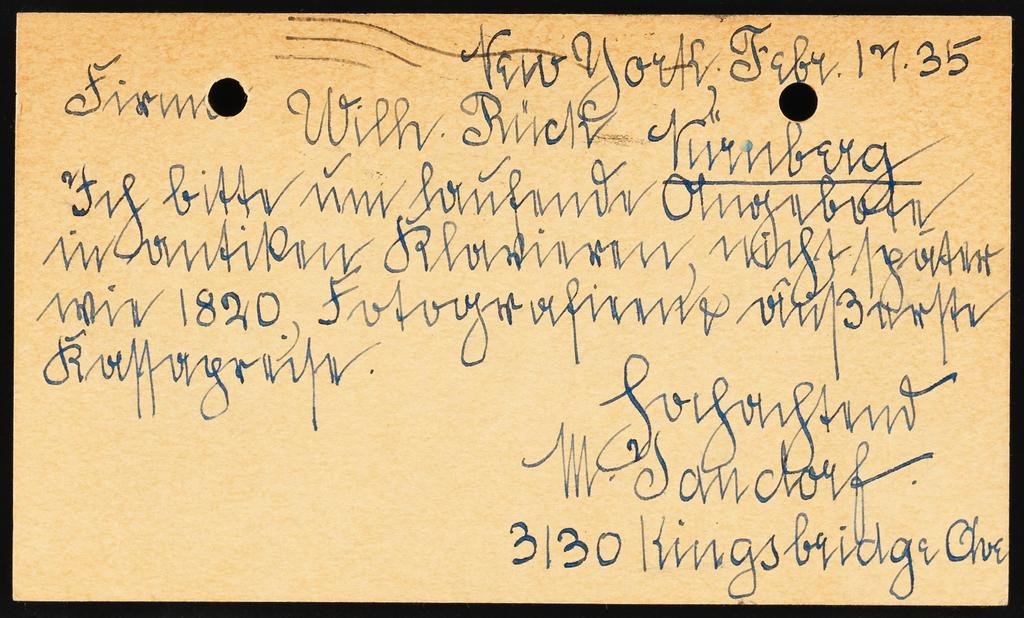 New York, Febr. 17. 35
Firma Wilh. Rück Nürnberg
Ich bitte um laufende Angebote
in antiken Klavieren, nicht später
wie 1820, Fotografieen & äußerste
Kassapreise.
Hochachtend
M. Jandorf.
3130 Kingsbridge Ave